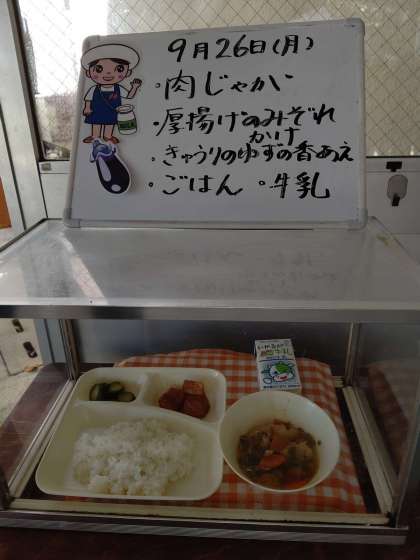 9月26日(月)
・肉じゃが
・厚揚げのみぞれ
かけ
・きゅうりのゆずの香あえ
・ごはん ・牛乳
牛乳